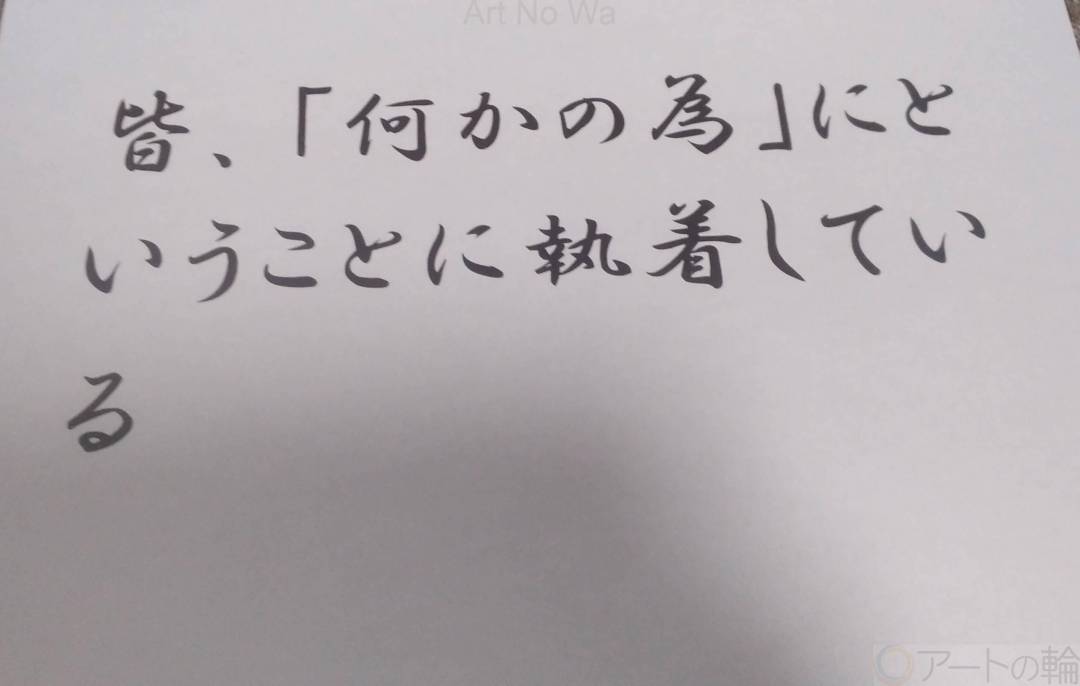 Art No Wa
皆、「何かの為」にと
いうことに執着してい
る
アートの輪